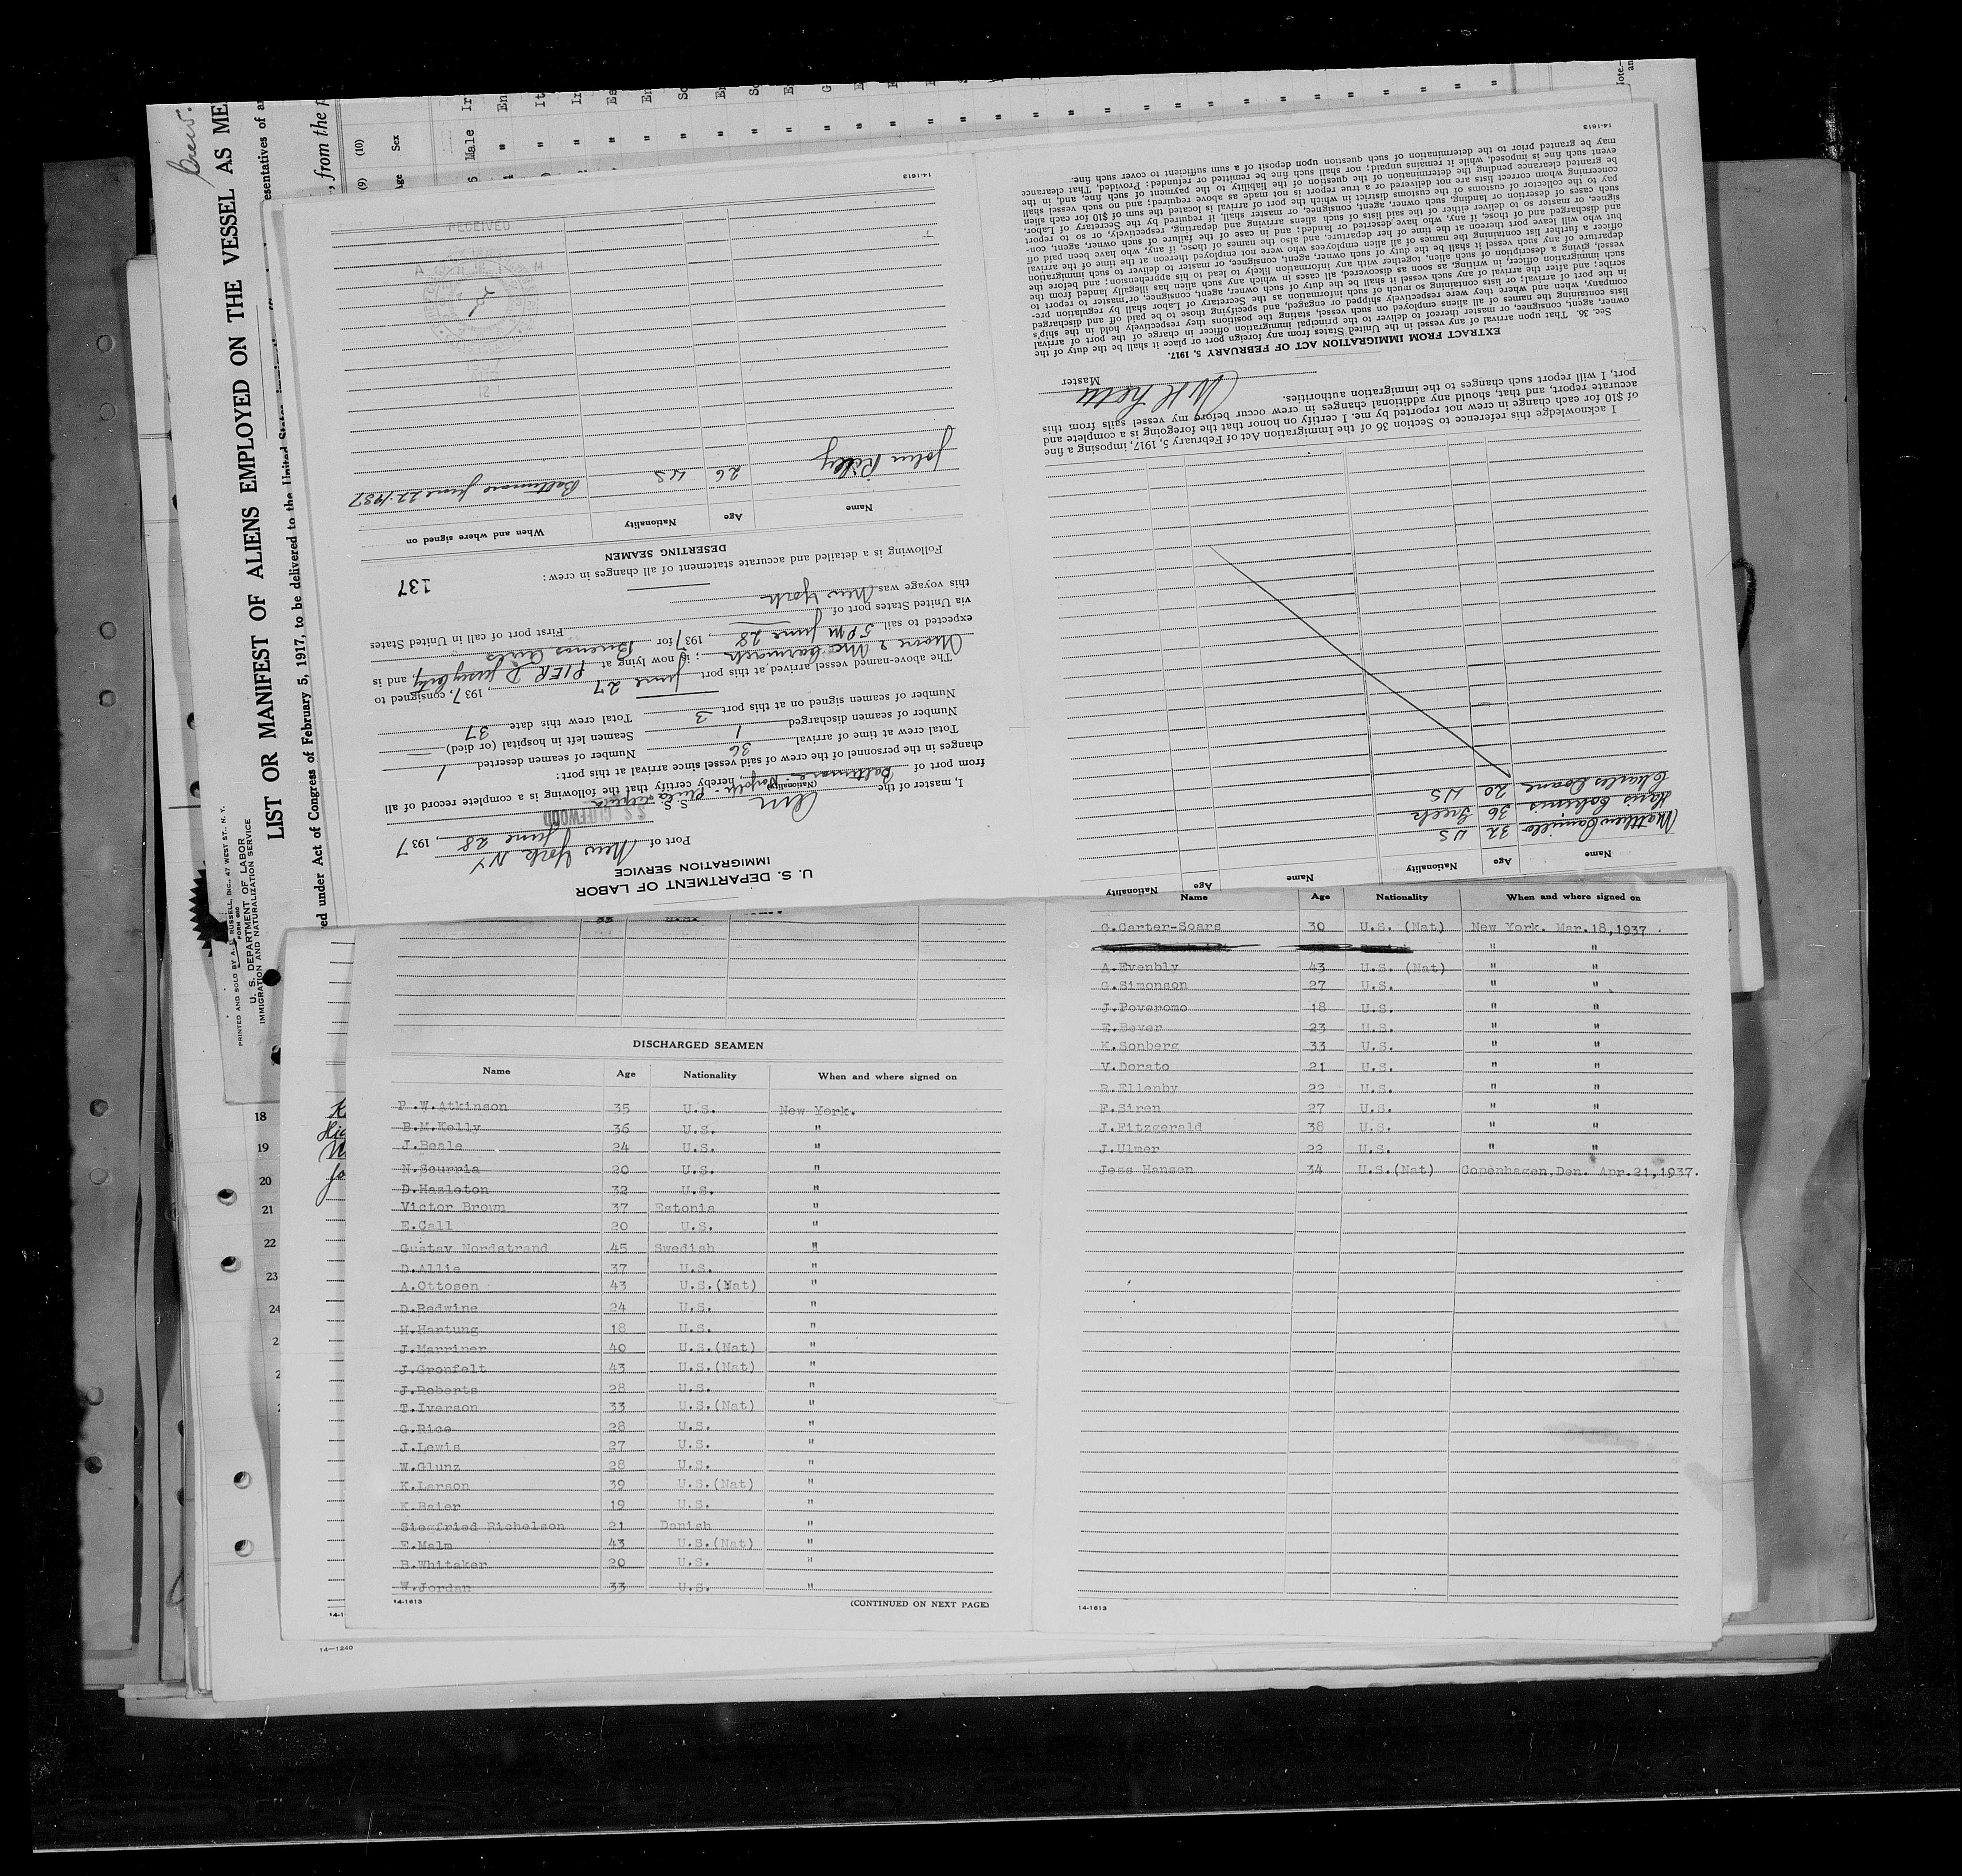 Crew.
LIST OR MANIFEST OF ALIENS EMPLOYED ON THE VESSEL AS ME
ed under Act of Congress of February 5, 1917, to be delivered to the United States
esentatives of a
, from the
PRINTED AND SOLD BY A. L. RUSSELL, INC., 47 WEST ST., N. Y.
FORM 680
U. S. DEPARTMENT OF LABOR
IMMIGRATION AND NATURALIZATION SERVICE
(9)
(10)
Age
Sex
Male
18
19
20
21
22
23
24
14—1240
U. S. DEPARTMENT OF LABOR
IMMIGRATION SERVICE
Port of New York NY June 28, 1937
S.S. CLIFFWOOD
I, master of the Am S. S.
(Nationality)
from port of Baltimore - Norfolk - Phila, hereby certify that the following is a complete record of all
changes in the personnel of the crew of said vessel since arrival at this port:
Total crew at time of arrival 36 Number of seamen deserted 1
Number of seamen discharged 1 Seamen left in hospital (or died) —
Number of seamen signed on at this port 3 Total crew this date 37
The above-named vessel arrived at this port June 27, 1937, consigned to
Moore & McCormack; is now lying at PIER D Jersey City, and is
expected to sail 5 PM June 28, 1937 for Buenos Aires
via United States port of First port of call in United States
this voyage was New York
137
Following is a detailed and accurate statement of all changes in crew:
DESERTING SEAMEN
Name Age Nationality When and where signed on
John Riley 26 US Baltimore June 22-1937
RECEIVED
14-1613
Name Age Nationality Name Age Nationality
Matthew Daniels 32 US
Hans 36 Greek
Charles Doane 20 US
I acknowledge this reference to Section 36 of the Immigration Act of February 5, 1917, imposing a fine
of $10 for each change in crew not reported by me. I certify on honor that the foregoing is a complete and
accurate report, and that, should any additional changes in crew occur before my vessel sails from this
port, I will report such changes to the immigration authorities.
Master
EXTRACT FROM IMMIGRATION ACT OF FEBRUARY 5, 1917.
Sec. 36. That upon arrival of any vessel in the United States from any foreign port or place it shall be the duty of the
owner, agent, consignee, or master thereof to deliver to the principal immigration officer in charge of the port of arrival
lists containing the names of all aliens employed on such vessel, stating the positions they respectively hold in the ship's
company, when and where they were respectively shipped or engaged, and specifying those to be paid off and discharged
in the port of arrival; or lists containing so much of such information as the Secretary of Labor shall by regulation pre-
scribe; and after the arrival of any such vessel it shall be the duty of such owner, agent, consignee, or master to report to
such immigration officer, in writing, as soon as discovered, all cases in which any such alien has illegally landed from the
vessel, giving a description of such alien, together with any information likely to lead to his apprehension; and before the
departure of any such vessel it shall be the duty of such owner, agent, consignee, or master to deliver to such immigration
officer a further list containing the names of all alien employees who were not employed thereon at the time of the arrival
but who will leave port thereon at the time of her departure, and also the names of those, if any, who have been paid off
and discharged and of those, if any, who have deserted or landed; and in case of the failure of such owner, agent, con-
signee, or master so to deliver either of the said lists of such aliens arriving and departing, respectively, or so to report
such cases of desertion or landing, such owner, agent, consignee, or master, shall, if required by the Secretary of Labor,
pay to the collector of customs of the customs district in which the port of arrival is located the sum of $10 for each alien
concerning whom correct lists are not delivered or a true report is not made as above required; and no such vessel shall
be granted clearance pending the determination of the question of the liability to the payment of such fine, and, in the
event such fine is imposed, while it remains unpaid; nor shall such fine be remitted or refunded: Provided, That clearance
may be granted prior to the determination of such question upon deposit of a sum sufficient to cover such fine.
14-1613
DISCHARGED SEAMEN
Name Age Nationality When and where signed on
P.W.Atkinson 35 U.S. New York.
B.M.Kelly 36 U.S. "
J.Beale 24 U.S. "
N.Scurria 20 U.S. "
D.Hazleton 32 U.S. "
Victor Brown 37 Estonia "
E.Call 20 U.S. "
Gustav Nordstrand 45 Swedish "
D.Allie 37 U.S. "
A.Ottosen 43 U.S.(Nat) "
D.Redwine 24 U.S. "
H.Hartung 18 U.S. "
J.Marriner 40 U.S.(Nat) "
J.Gronfelt 43 U.S.(Nat) "
J.Roberts 28 U.S. "
T.Iverson 33 U.S.(Nat) "
G.Rice 28 U.S. "
J.Lewis 27 U.S. "
W.Glunz 28 U.S. "
K.Larson 39 U.S.(Nat) "
K.Baier 19 U.S. "
Siegfried Richelson 21 Danish "
E.Malm 43 U.S.(Nat) "
B.Whitaker 20 U.S. "
W.Jordan 33 U.S. "
14-1613
(CONTINUED ON NEXT PAGE)
Name Age Nationality When and where signed on
G.Carter-Soars 30 U.S. (Nat) New York. Mar.18,1937.
" "
A.Evenbly 43 U.S. (Nat) " "
G.Simonson 27 U.S. " "
J.Poveromo 18 U.S. " "
E.Bever 23 U.S. " "
K.Sonberg 33 U.S. " "
V.Dorato 21 U.S. " "
R.Ellenby 22 U.S. " "
F.Siren 27 U.S. " "
J.Fitzgerald 38 U.S. " "
J.Ulmer 22 U.S. " "
Jess Hansen 34 U.S.(Nat) Copenhagen,Den. Apr.21,1937.
14-1613